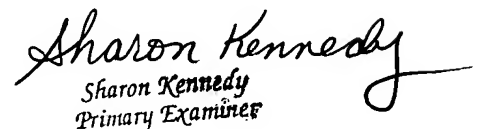 Sharon Kennedy
Sharon Kennedy
Primary Examiner